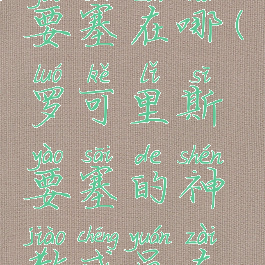 要塞在哪（
luó kě lǐ sī
罗可里斯
yào sài de shén
要塞的神
jiào chéng yuán zài
教成员在